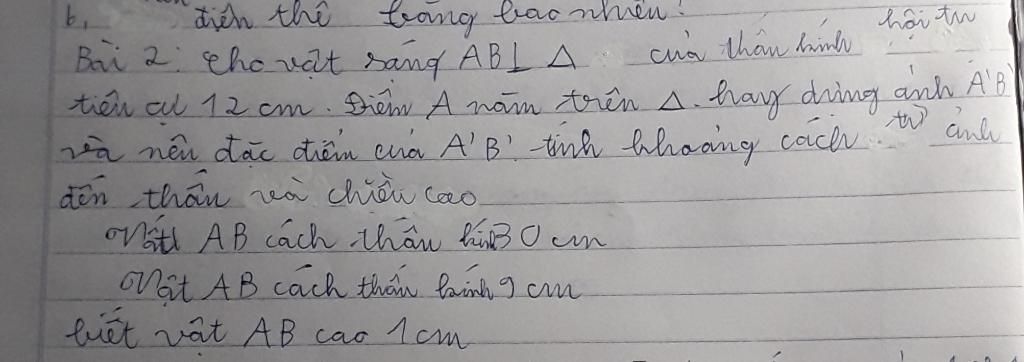 b, điện thế trăng bao nhiêu?
Bài 2: Cho vật sáng AB⊥ Δ của thấu kính hội tụ
tiêu cự 12 cm. Điểm A nằm trên Δ. hãy dựng ảnh A'B'
và nêu đặc điểm của A'B' tính khoảng cách từ ảnh
đến thấu và chiều cao
Vật AB cách thấu kính 30 cm
Vật AB cách thấu kính 9 cm
biết vật AB cao 1cm